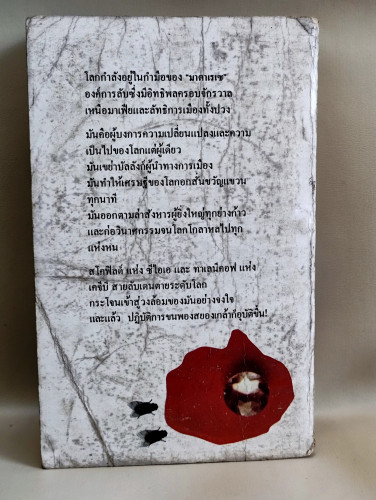 โลกกำลังอยู่ในกำมือของ "มาดาเรเซ"
องค์การลับซึ่งมีอิทธิพลครอบจักรวาล
เหนือมาเฟียและลัทธิการเมืองทั้งปวง
มันคือผู้บงการความเปลี่ยนแปลงและความ
เป็นไปของโลกแต่ผู้เดียว
มันเขย่าบัลลังก์ผู้นำทางการเมือง
มันทำให้เศรษฐีของโลกอกสั่นขวัญแขวน
ทุกนาที
มันออกตามล่าสังหารผู้ยิ่งใหญ่ทุกย่างก้าว
และก่อวินาศกรรมจนโลกโกลาหลไปทุก
แห่งหน
สโคฟิลด์ แห่ง ซีไอเอ และ ทาเลนิคอฟ แห่ง
เคจีบี สายลับเดนตายระดับโลก
กระโจนเข้าสู่วงล้อมของมันอย่างจงใจ
และแล้ว ปฏิบัติการขนพองสยองเกล้าก็อุบัติขึ้น!